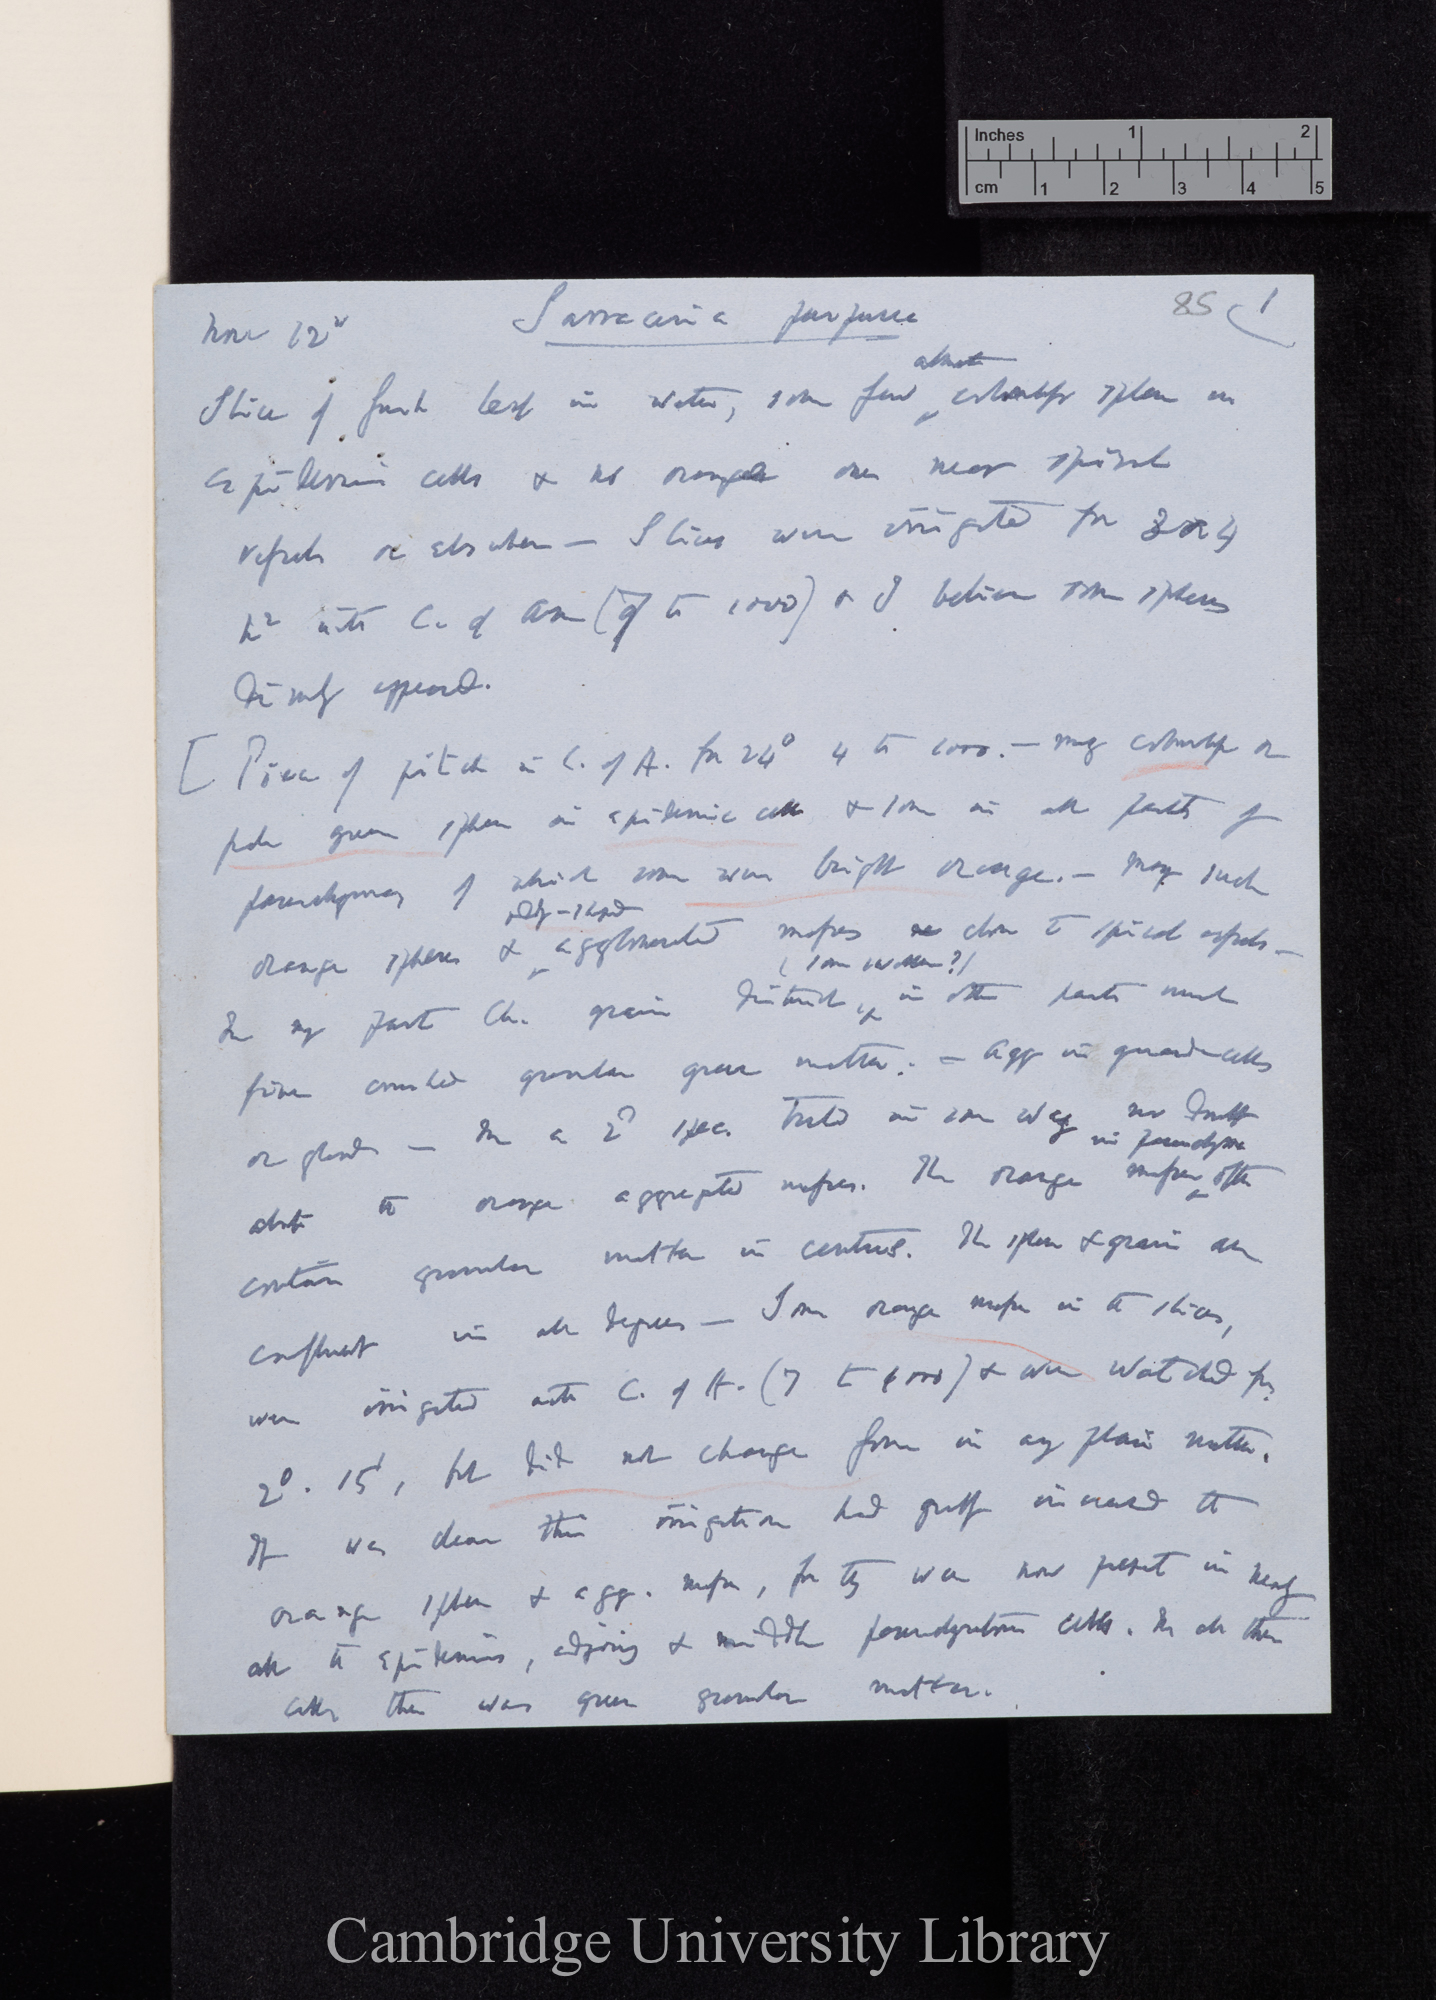 Inches 1 2
cm 1 2 3 4 5
Nov 12th Sarracenia purpurea 85 (1
almost
Slice of fresh leaf in water, some few colourless spheres in
epidermic cells & no orange ones near spiral
vessels or elsewhere — Slices were irrigated for 3 or 4
hrs with C. of Am (7 to 1000) & I believe some spheres
dimly appeared.
[Piece of pitcher in C. of A. for 24° 4 to 1000. — many colourless or
pale green spheres in epidermic cells & some in all parts of
parenchyma of which some were bright orange. — Many such
oddly-shaped
orange spheres & agglomerated masses close to spiral vessels —
(some swollen?)
In many parts Ch. grains distinct, in other parts much
fine crowded granular green matter. — Agg in guard-cells
or glands — In a 2d spec. treated in same way no doubt
in parenchyma
about the orange aggregated masses. The orange masses often
contain granular matter in centres. The spheres & grains are
confluent in all degrees — Some orange masses in the slices,
were irrigated with C. of A. (7 to 1000) & were watched for
2°. 15', but did not change form in any plain matter.
It was clear this irrigation had greatly increased the
orange spheres & agg. masses, for they were now present in nearly
all the epidermis, adjoining & middle parenchymatous cells. In all these
cells there was green granular matter.
Cambridge University Library